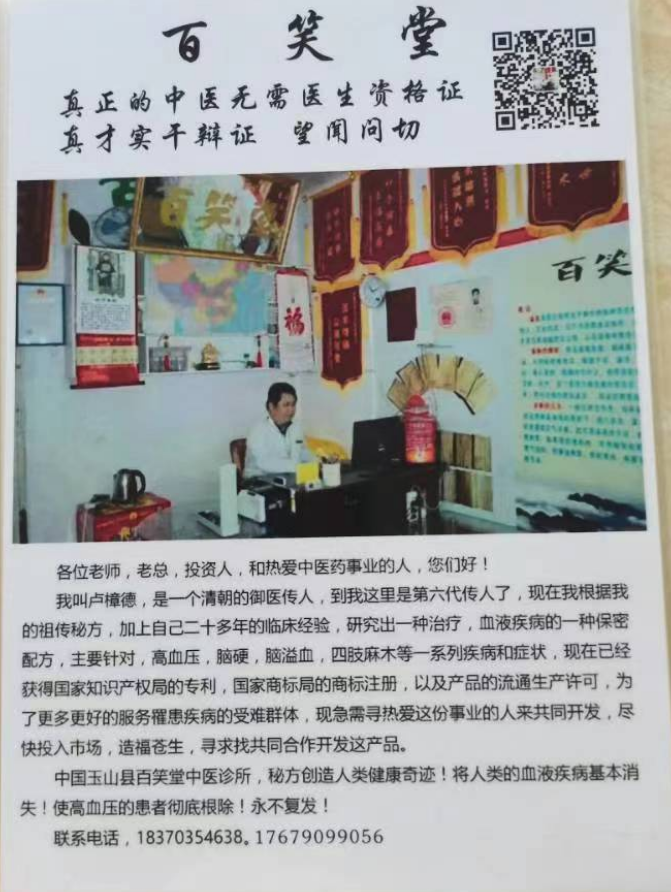 百笑堂
真正的中医无需医生资格证
真才实干辩证 望闻问切
百笑堂
福
百笑
各位老师，老总，投资人，和热爱中医药事业的人，您们好！
我叫卢樟德，是一个清朝的御医传人，到我这里是第六代传人了，现在我根据我
的祖传秘方，加上自己二十多年的临床经验，研究出一种治疗，血液疾病的一种保密
配方，主要针对，高血压，脑硬，脑溢血，四肢麻木等一系列疾病和症状，现在已经
获得国家知识产权局的专利，国家商标局的商标注册，以及产品的流通生产许可，为
了更多更好的服务罹患疾病的受难群体，现急需寻热爱这份事业的人来共同开发，尽
快投入市场，造福苍生，寻求找共同合作开发这产品。
中国玉山县百笑堂中医诊所，秘方创造人类健康奇迹！将人类的血液疾病基本消
失！使高血压的患者彻底根除！永不复发！
联系电话，18370354638。17679099056